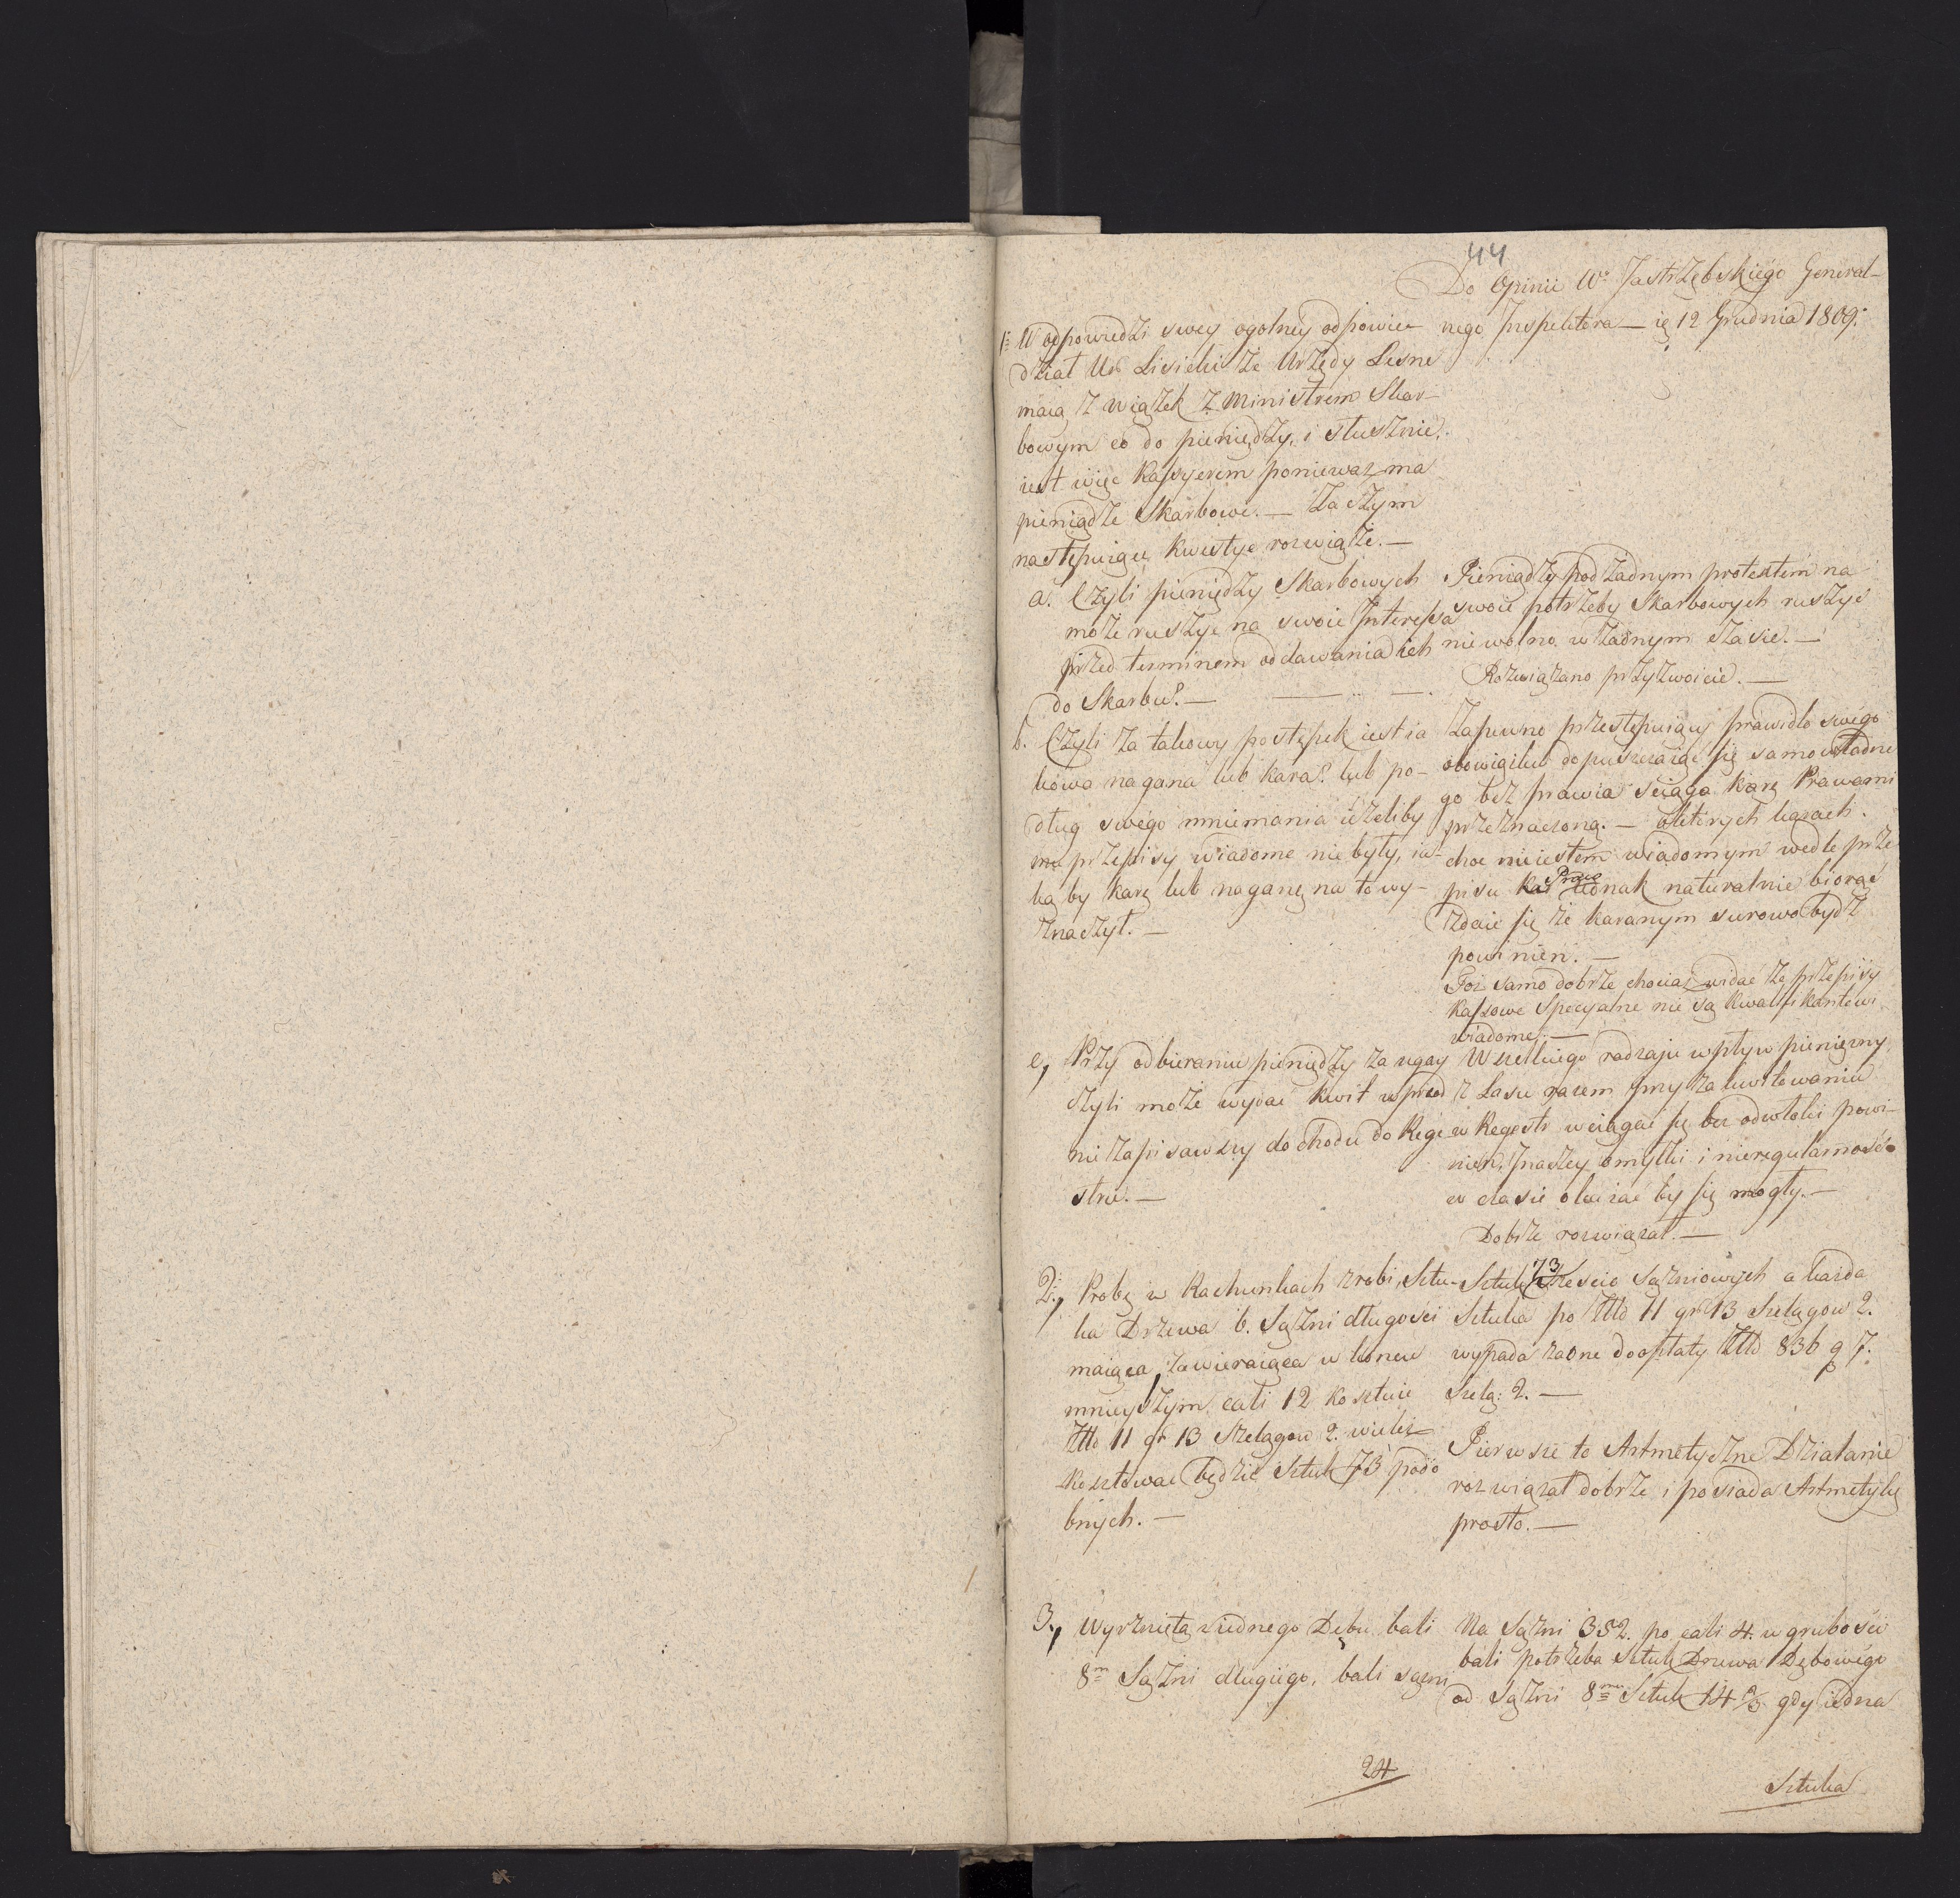 44
Do Opinii Wo Jastrzębskiego General-
nego Inspektora — ię 12 Grudnia 1809.
1. W odpowiedzi swey ogolney odpowie
dział Ur Lisiecki że Urzędy Lesne
maią związek z Ministrem Skar-
bowym co do pieniędzy, i słusznie,
iest więc Kassyerem ponieważ ma
pieniądze Skarbowe. — Zaczym
następuiące kwestye rozwiąże. —
a. Czyli pieniędzy Skarbowych
może ruszyć na swoie Interessa
przed terminem oddawania ich
do Skarbu? —
Pieniądzy pod żadnym protextem na
swoie potrzeby Skarbowych ruszyć
niewolno w żadnym czasie. —
Rozwiązano przyzwoicie. —
b. Czyli za takowy postępek iest ia
kowa nagana lub kara? lub po-
dług swégo mniemania iżeliby
mu przepisy wiadome nie były, ia-
ką by karę lub naganę na to wy-
znaczył. —
Zapewno przestępuiący prawidło swégo
obowiązku dopuszczaiąc się samowładne
go bez prawia sciąga karę Prawami
przeznaczoną. — o których karach
choc nieiestem wiadomym wedle prze
pisu Kar Praw iednak naturalnie biorąc
zdaie się że karanym surowo bydź
powinien. —
Toż samo dobrze chociaż widac że przepisy
Kassowe Specyalne nie są kwalifikantowi
wiadome. —
c, Przy odbieraniu pieniędzy za ugay
czyli może wydac kwit wprzod
nie zapisawszy dochodu do Rege
stru. —
Wszelkiego rodzaju wpływ pieniężny
z Lasu razem przy zakwitowaniu
w Regestr wciągać się bez odwłoki powi-
nien, inaczey omyłki i nieregularnośći
w czasie okazać by się mogły. —
Dobrze rozwiązał. —
2, Probę w Rachunkach zrobi, Sztu-
ka Drzewa 6. Sążni długości
maiąca, zawieraiąca w koncu
mnieyszym cali 12 kosztuie
Złło 11 gr 13 Szelągow 2. wieleż
kosztowac będzie Sztuk 73 podo
bnych. —
Sztuk 73 Szescio Sążniowych a każda
Sztuka po Złło 11 gr 13 Szelągow 2.
wypada za one do opłaty Złło 836 g 7.
Szelą: 2. —
Pierwsze to Artmetyczne Działanie
rozwiązał dobrze i posiada Artmetykę
prosto. —
3, Wyrznięta z iednego Dębu bali
8m Sążni długiego, bali sążni
Na Sążni 352. po cali 4. w grubości
bali potrzeba Sztuk Drzewa Dębowégo
od Sążni 8miu Sztuk 14 2/3 gdy iedna
24
Sztuka